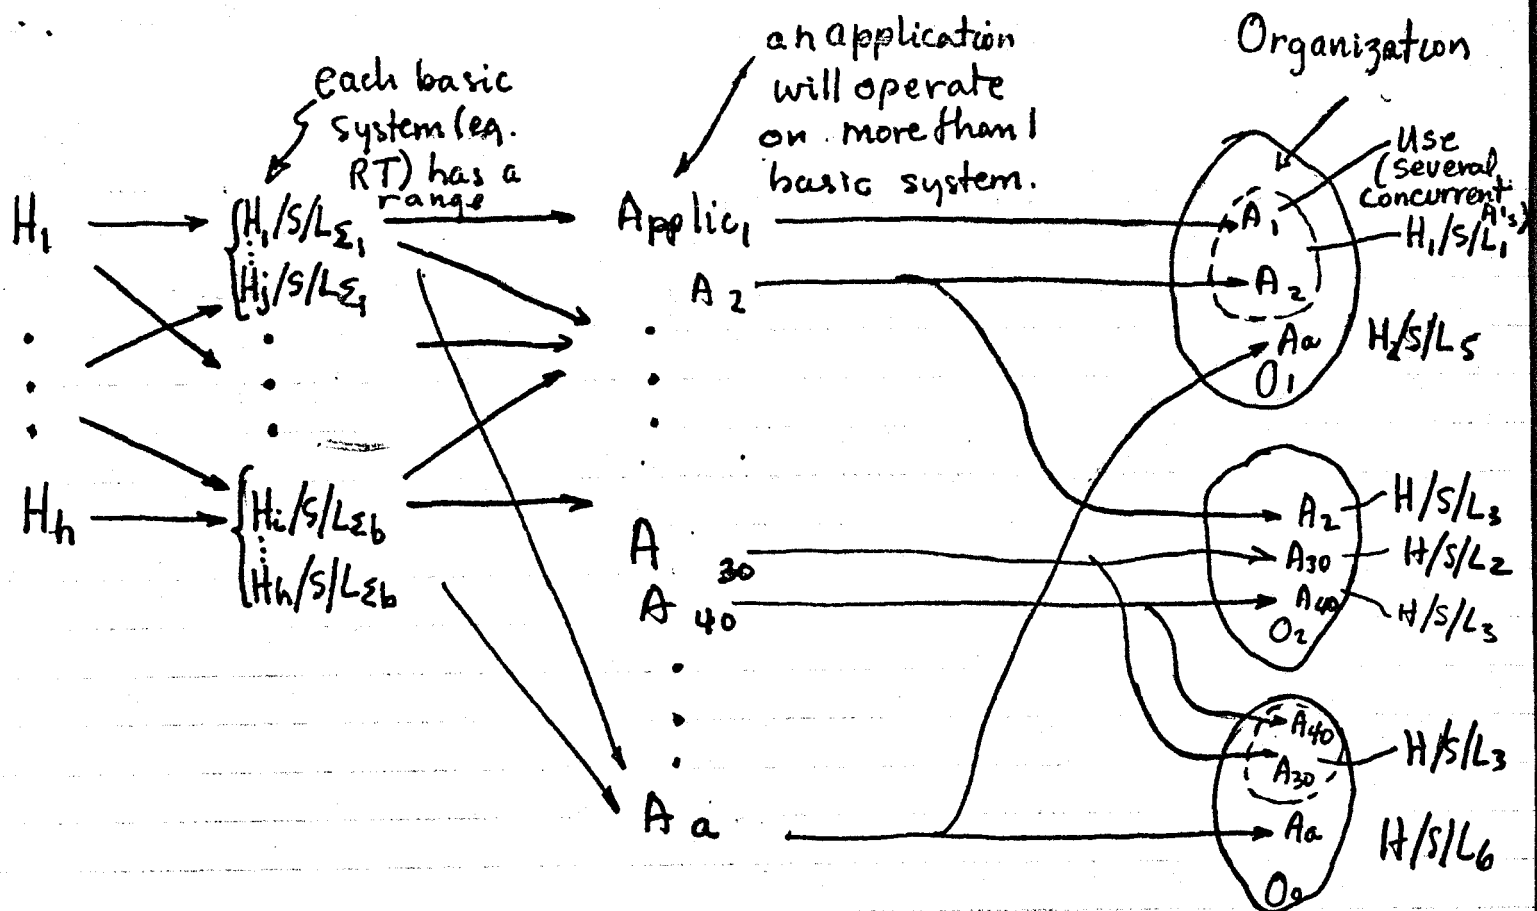 each basic
system (eg.
RT) has a
range
an application
will operate
on more than 1
basic system.
Organization
Use
(several
concurrent
A's)
H₁
Hₕ
H₁/S/L_Σ₁
Hⱼ/S/L_Σ₁
Hᵢ/S/L_Σb
Hₕ/S/L_Σb
Applic₁
A₂
A₃₀
A₄₀
Aₐ
A₁
A₂
Aₐ
O₁
H₁/S/L₁
/S/L₅
A₂
A₃₀
A₄₀
O₂
H/S/L₃
H/S/L₂
H/S/L₃
A₄₀
A₃₀
Aₐ
H/S/L₃
H/S/L₆